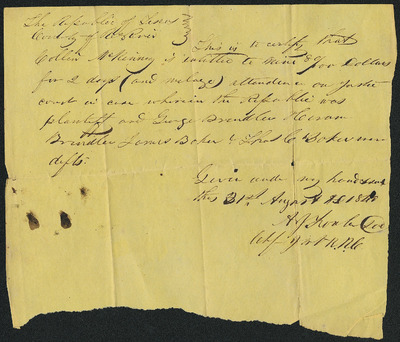 The Republic of Texas
County of Red River
This is to certify that
Collin McKinney is entitled to nine /00 Dollars
for 2 days (and milage) attendance on Justice
court in case wherein the Republic was
plaintiff and George Brindlee Hiram
Brindlee James Baker & Thos C Baker were
defts.
Given under my hand & seal
this 31st August AD 184
A J